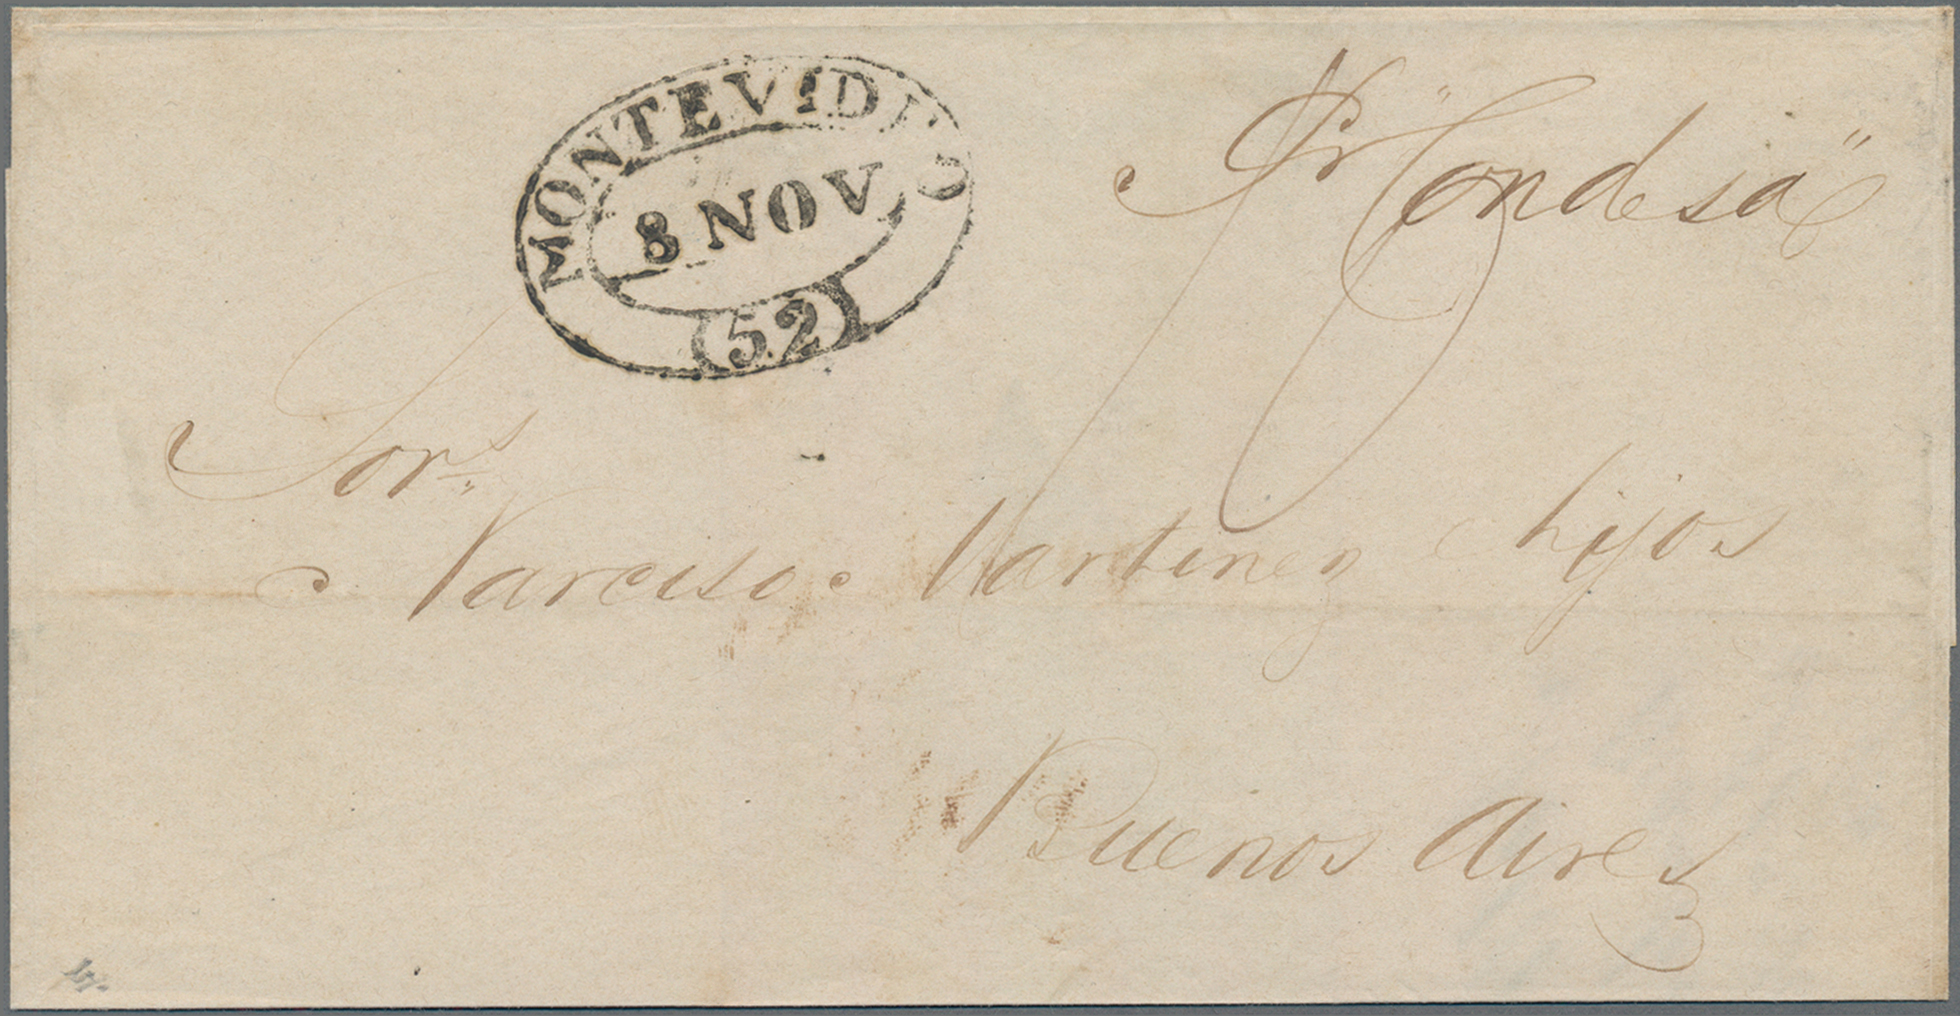 MONTEVIDEO
8 NOV
(52)
Pr "Condesa"
Sors.
Narciso Martinez hijos
Buenos Aires